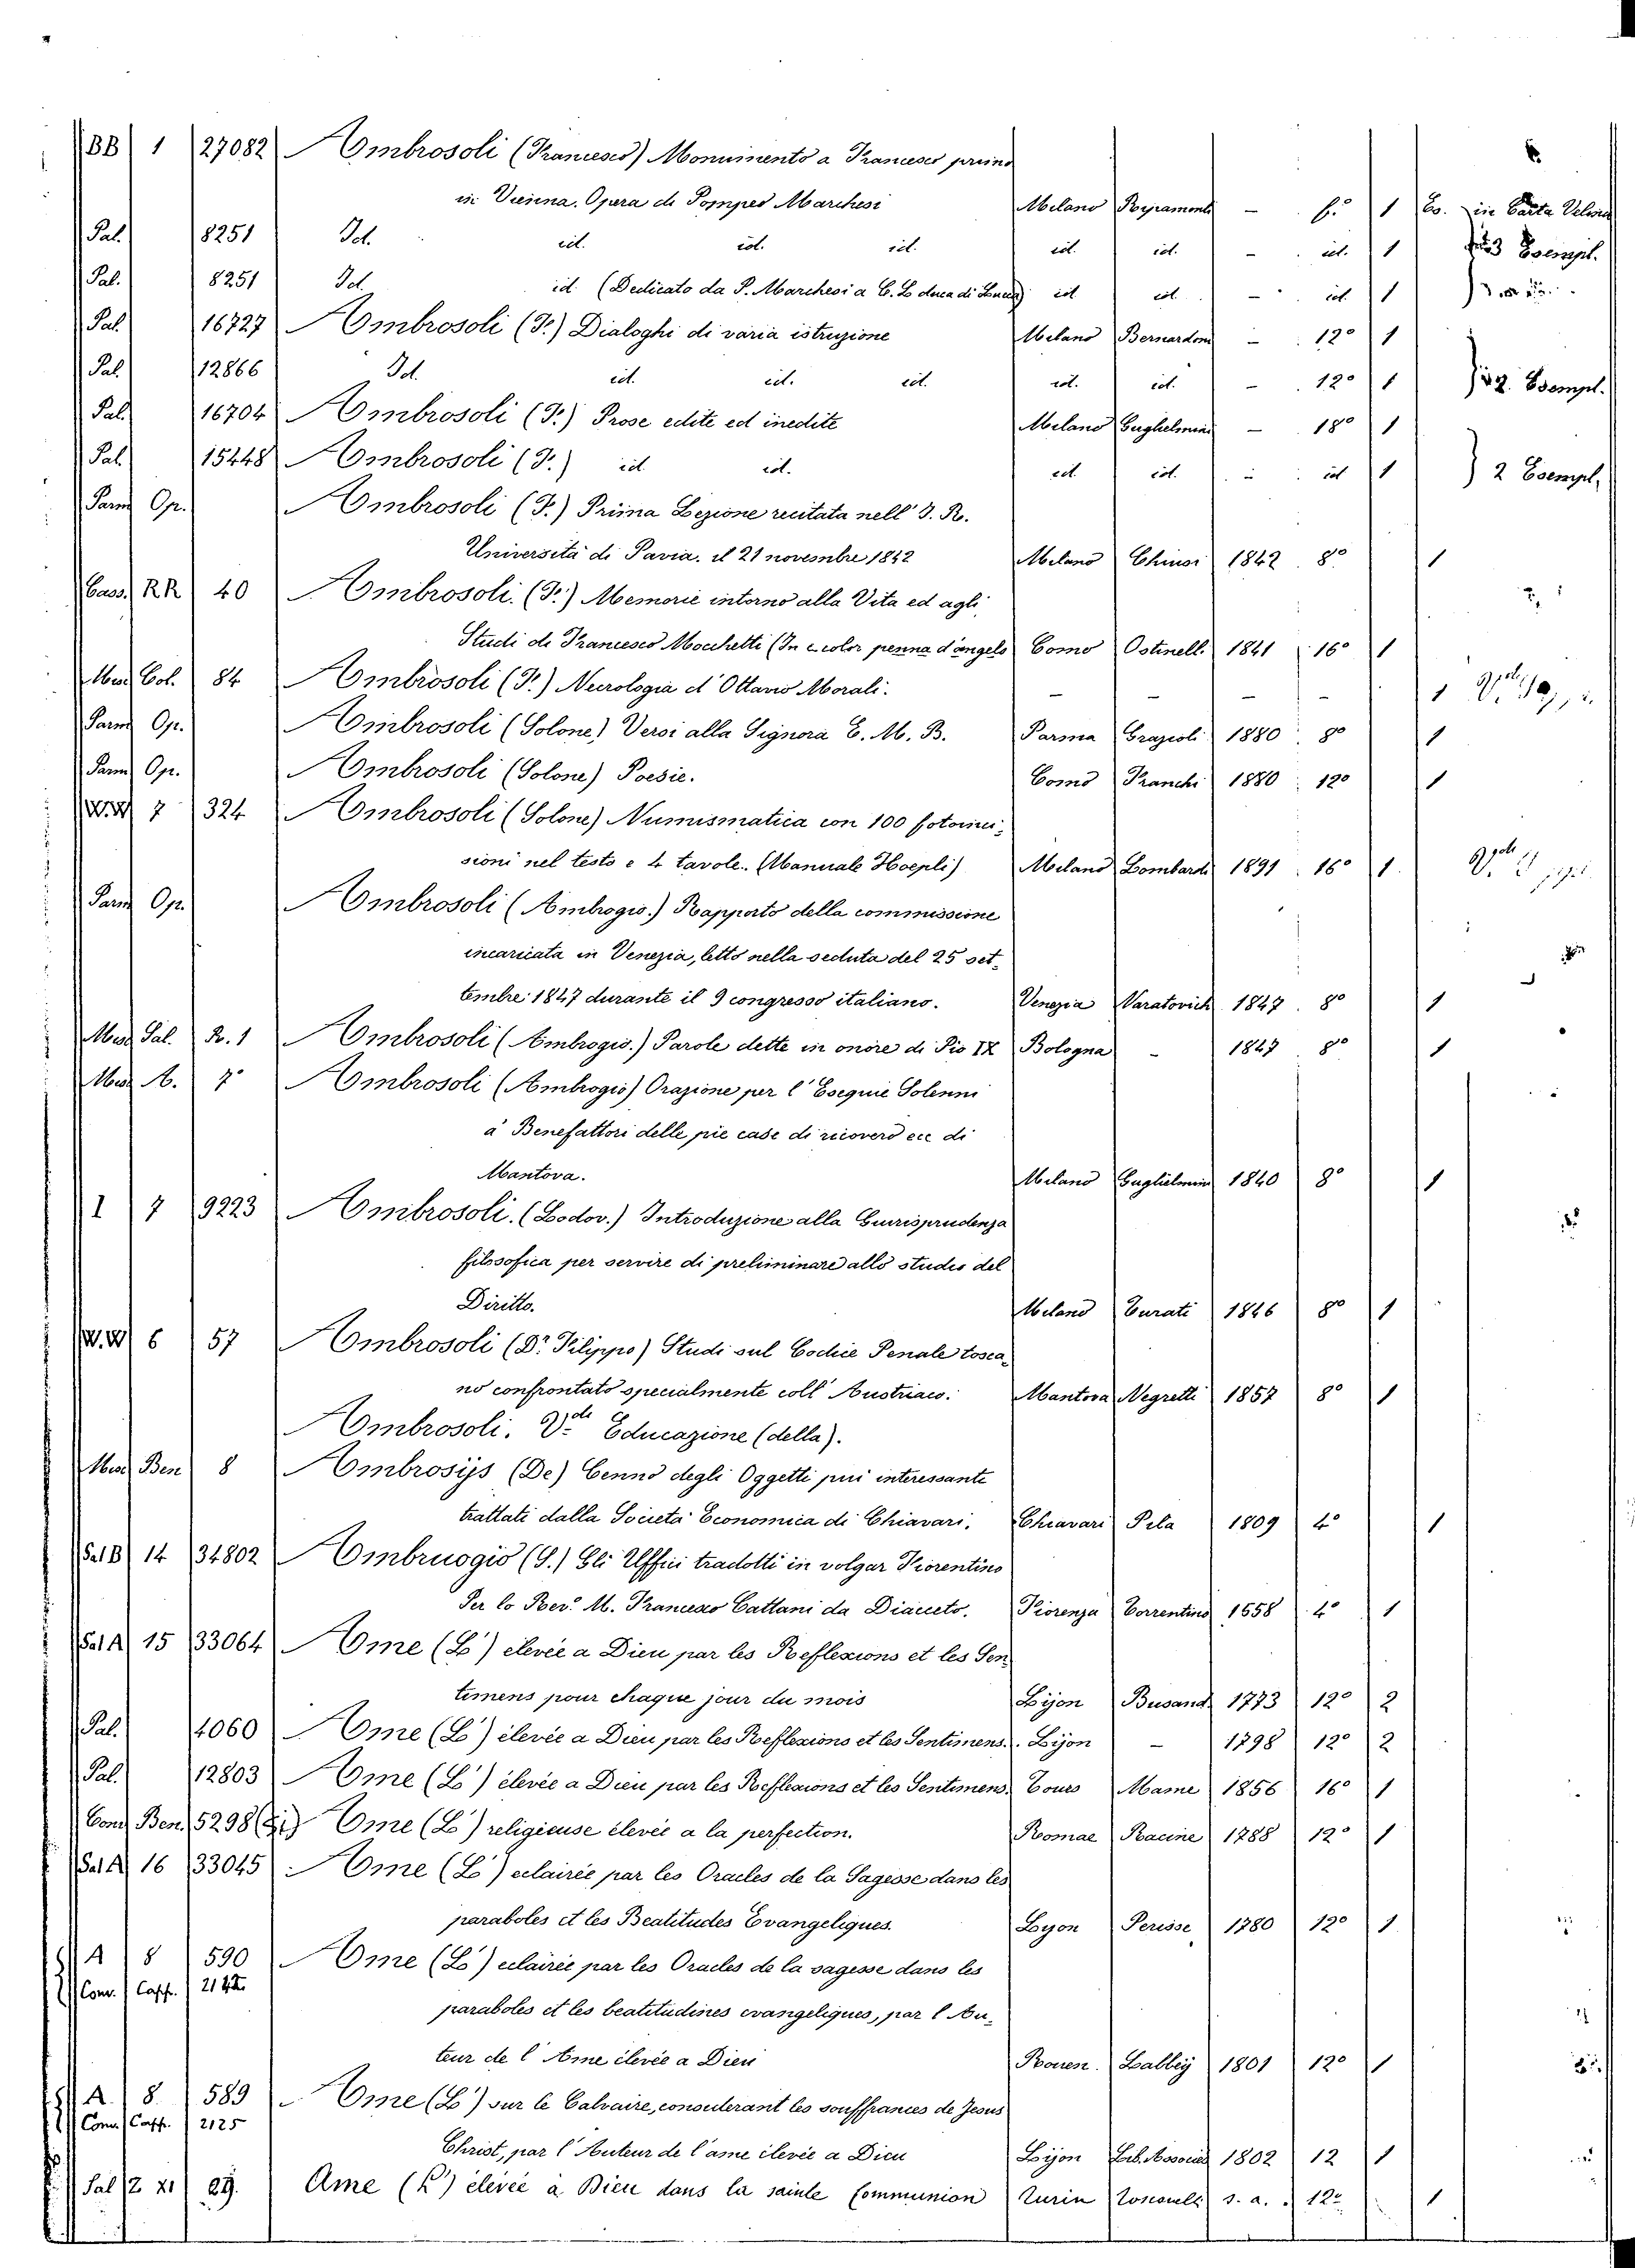 BB 1 27082 Ambrosoli (Francesco) Monumento a Francesco primo
in Vienna. Opera di Pompeo Marchesi Milano — f.° 1 Es. in Carta Velina
Pal. 8251 Id. id. id. id. id. id. — id. 1 3 Esempl.
Pal. 8251 Id. id. (Dedicato da P. Marchesi a C. L. duca di Lucca) id. id. — id. 1
Pal. 16727 Ambrosoli (F.) Dialoghi di varia istruzione Milano Bernardoni — 12° 1
Pal. 12866 Id. id. id. id. id. id. — 12° 1 2 Esempl.
Pal. 16704 Ambrosoli (F.) Prose edite ed inedite Milano Guglielmini — 18° 1
Pal. 15448 Ambrosoli (F.) id. id. id. id. — id. 1 2 Esempl.
Parm Op. Ambrosoli (F.) Prima Lezione recitata nell' I. R.
Università di Pavia. il 21 novembre 1842 Milano Chiusi 1842 8° 1
Cass. RR 40 Ambrosoli. (F.) Memorie intorno alla Vita ed agli
Studi di Francesco Mocchetti (In e color penna d'angelo Como Ostinelli 1841 16° 1
Misc Col. 84 Ambrosoli (F.) Necrologia d' Ottavio Morali. — — — — 1
Parm Op. Ambrosoli (Solone) Versi alla Signora E. M. B. Parma Grazioli 1880 8° 1
Parm Op. Ambrosoli (Solone) Poesie. Como Franchi 1880 12° 1
W.W 7 324 Ambrosoli (Solone) Numismatica con 100 fotoinci-
sioni nel testo e 4 tavole. (Manuale Hoepli) Milano Lombardi 1891 16° 1
Parm Op. Ambrosoli (Ambrogio.) Rapporto della commissione
incaricata in Venezia, letto nella seduta del 25 set-
tembre 1847 durante il 9 congresso italiano. Venezia Naratovich 1847 8° 1
Misc Pal. R. 1 Ambrosoli (Ambrogio.) Parole dette in onore di Pio IX Bologna — 1847 8° 1
Misc A. 7° Ambrosoli (Ambrogio) Orazione per l' Esequie Solenni
a' Benefattori delle pie case di ricovero ecc di
Mantova. Milano Guglielmini 1840 8° 1
I 7 9223 Ambrosoli. (Lodov.) Introduzione alla Giurisprudenza
filosofica per servire di preliminare allo studio del
Diritto. Milano Turati 1846 8° 1
W.W 6 57 Ambrosoli (Dr. Filippo) Studi sul Codice Penale tosca-
no confrontato specialmente coll' Austriaco. Mantova Negretti 1857 8° 1
Ambrosoli. V.di Educazione (della).
Misc Ben 8 Ambrosijs (De) Cenno degli Oggetti più interessante
trattati dalla Società Economica di Chiavari. Chiavari Pila 1809 4° 1
Sal B 14 34802 Ambruogio (S.) Gli Uffici tradotti in volgar Fiorentino
Per lo Rev.° M. Francesco Cattani da Diacceto. Fiorenza Torrentino 1558 4° 1
Sal A 15 33064 Ame (L') elevée a Dieu par les Reflexions et les Sen-
timens pour chaque jour du mois Lijon Busand 1773 12° 2
Pal. 4060 Ame (L') élevée a Dieu par les Reflexions et les Sentimens. Lijon — 1798 12° 2
Pal. 12803 Ame (L') élevée a Dieu par les Reflexions et les Sentimens. Tours Mame 1856 16° 1
Conv Ben. 5298 Ame (L') religieuse élevée a la perfection. Romae Racine 1788 12° 1
Sal A 16 33045 Ame (L') eclairée par les Oracles de la Sagesse dans les
paraboles et les Beatitudes Evangeliques. Lyon Perisse 1780 12° 1
A 8 590 Ame (L') eclairée par les Oracles de la sagesse dans les
Conv. Capp.
paraboles et les beatitudines evangeliques, par l' Au-
teur de l' Ame élevée a Dieu Rouen. Labbey 1801 12° 1
A. 8. 589 Ame (L') sur le Calvaire, considerant les souffrances de Jesus
Conv. Capp. 2125
Christ, par l' Auteur de l'ame élevée a Dieu Lijon Lib. Associés 1802 12 1
Sal Z XI 29. Ame (L') elevée à Dieu dans la sainte Communion Turin s. a. 12° 1